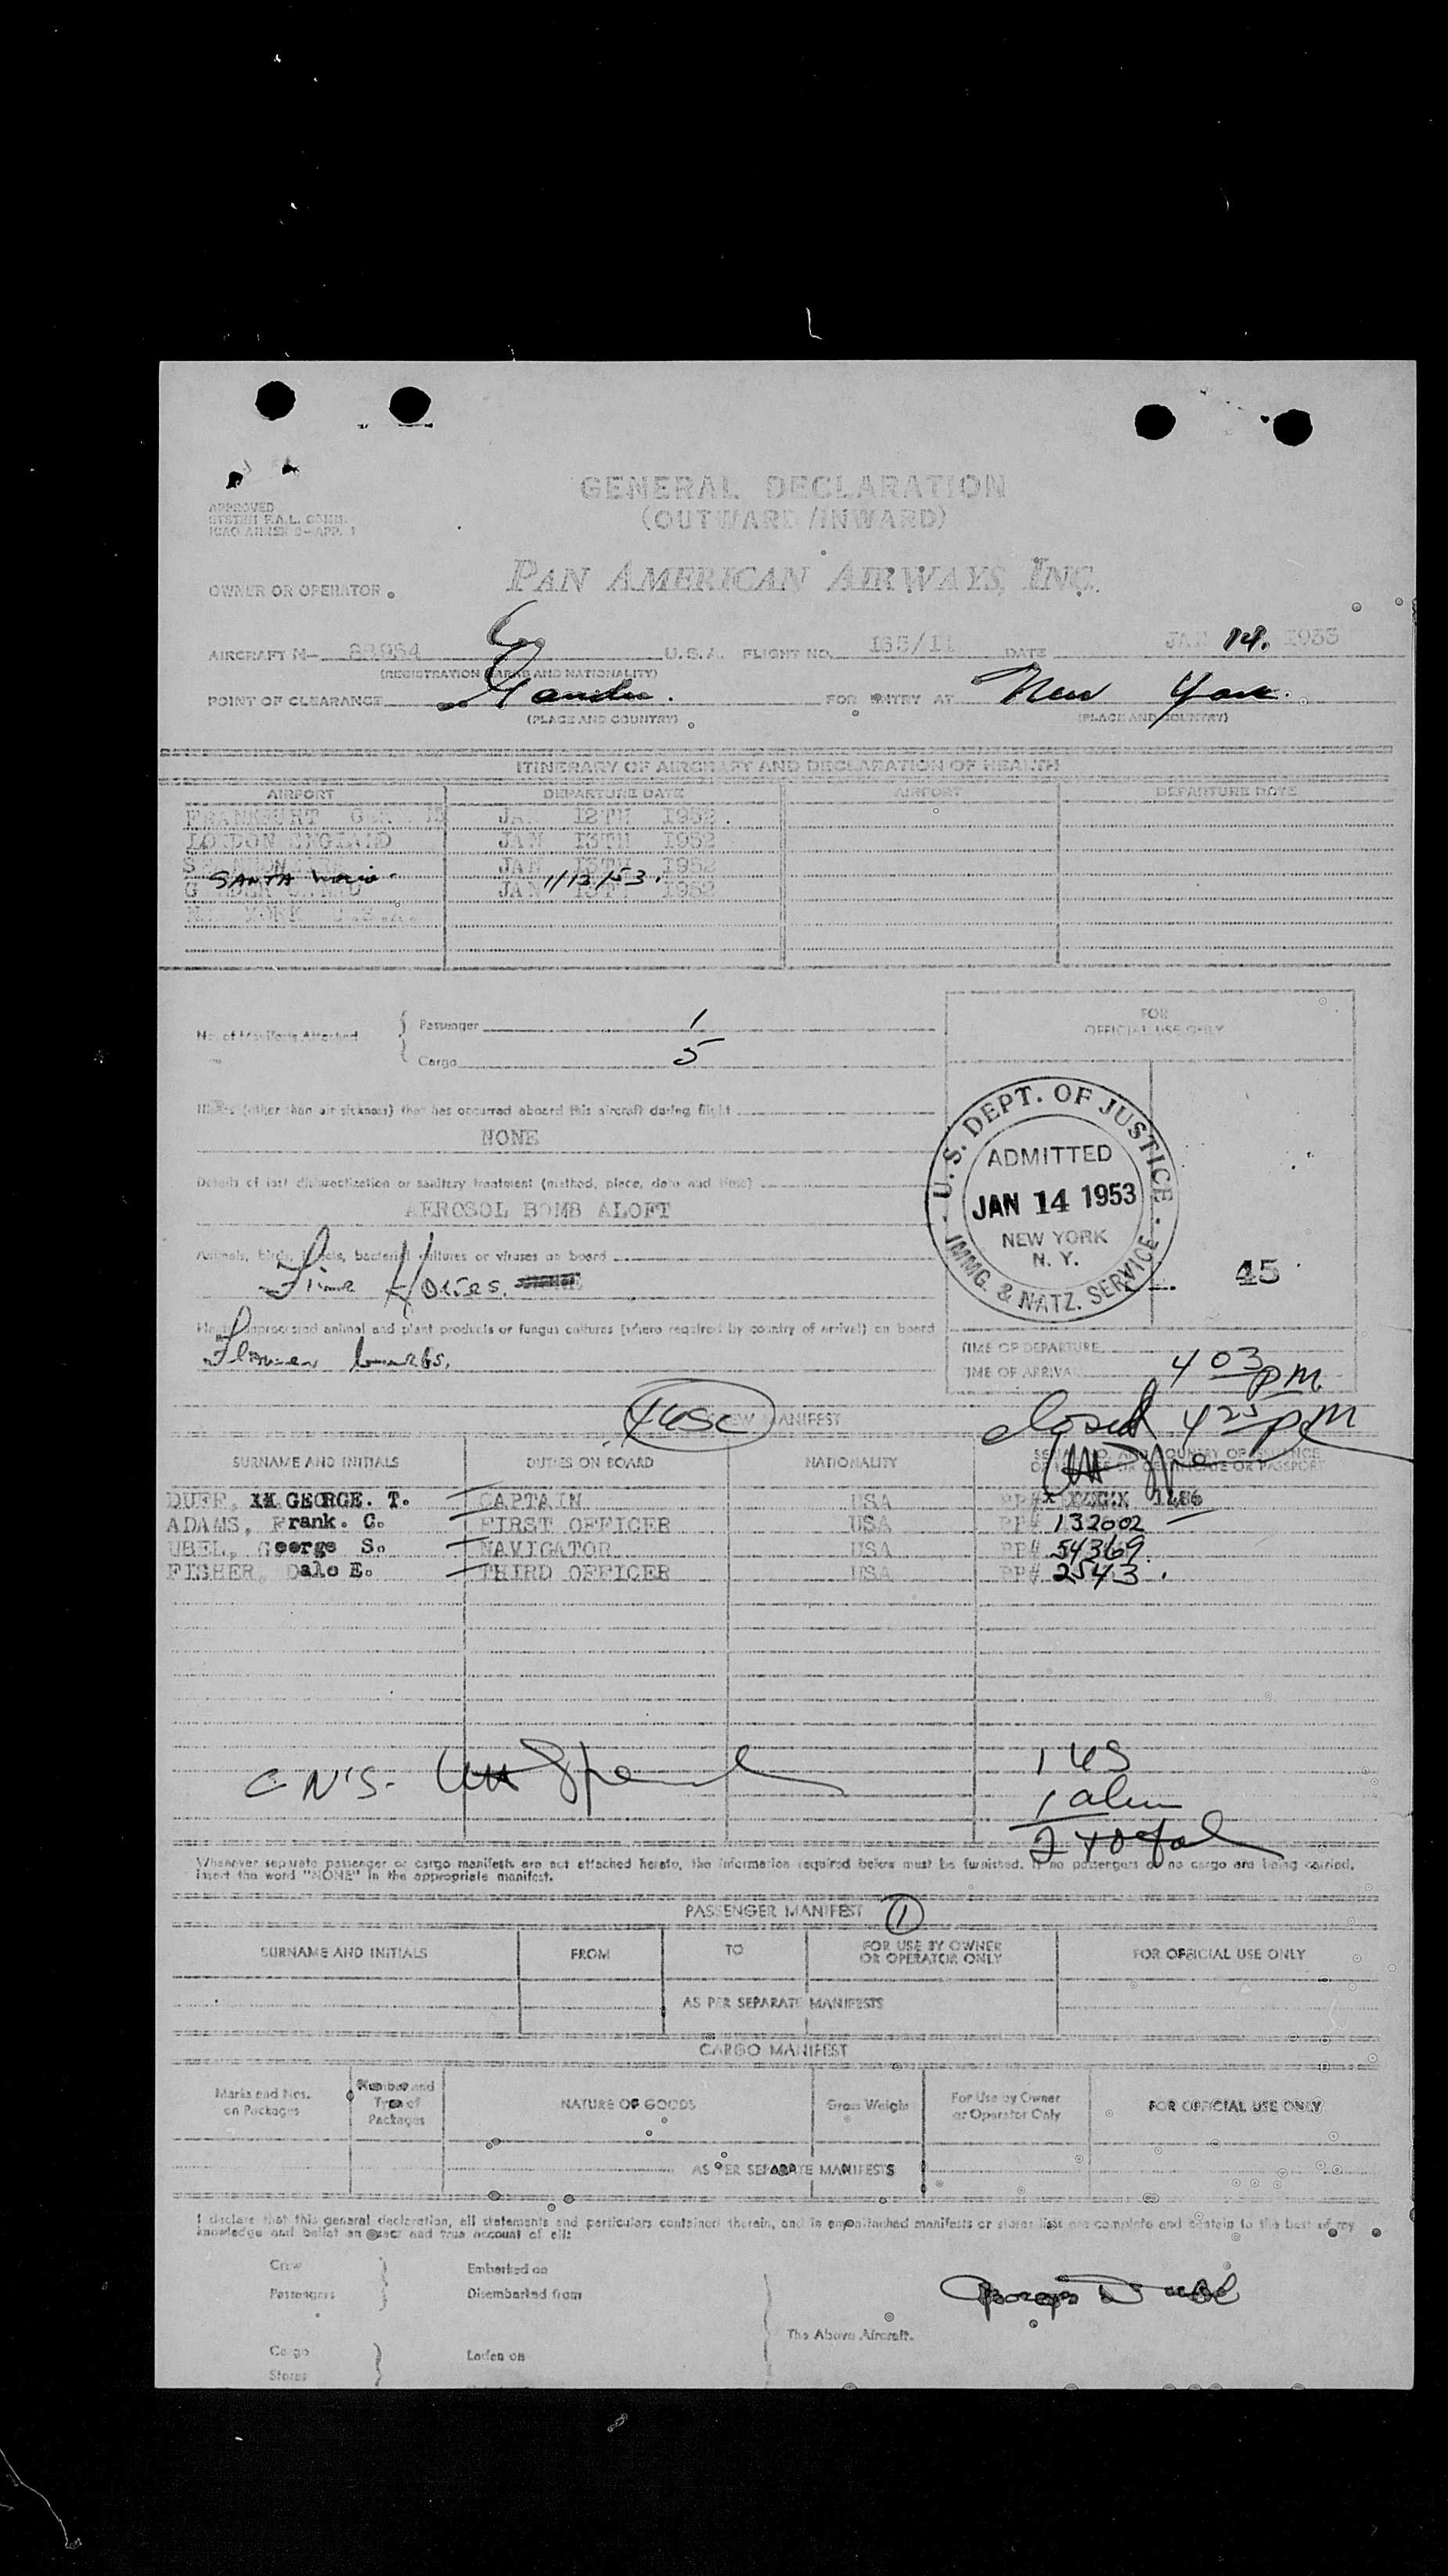 GENERAL DECLARATION
(OUTWARD/INWARD)
APPROVED
SYSTEM F.A.L. COMM.
ICAO ANNEX 9-APP. 1
PAN AMERICAN AIRWAYS, INC.
OWNER OR OPERATOR
AIRCRAFT N- 88954 U.S.A. FLIGHT NO. 165/11 DATE JAN 14. 1953
(REGISTRATION MARKS AND NATIONALITY)
POINT OF CLEARANCE Gander. FOR ENTRY AT New York.
(PLACE AND COUNTRY) (PLACE AND COUNTRY)
ITINERARY OF AIRCRAFT AND DECLARATION OF HEALTH
AIRPORT DEPARTURE DATE AIRPORT DEPARTURE DATE
FRANKFURT JAN 12TH 1952
LONDON ENGLAND JAN 13TH 1952
JAN 13TH 1952
SANTA Maria 1/13/53.
JAN 1952
YORK U.S.A.
No. of Manifests Attached
Passenger 1
Cargo 5
FOR
OFFICIAL USE ONLY
Illness (other than air sickness) that has occurred aboard this aircraft during flight
NONE
Details of last disinsectization or sanitary treatment (method, place, date and time)
AEROSOL BOMB ALOFT
Animals, birds, insects, bacterial cultures or viruses on board
Horses.
Plants, unprocessed animal and plant products or fungus cultures (where required by country of arrival) on board
Flower bulbs.
U.S. DEPT. OF JUSTICE
ADMITTED
JAN 14 1953
NEW YORK
N. Y.
IMMG. & NATZ. SERVICE
45
TIME OF DEPARTURE
TIME OF ARRIVAL 4 03 pm
closed 4 25 pm
4 USC
CREW MANIFEST
SURNAME AND INITIALS DUTIES ON BOARD NATIONALITY SERIAL NO. AND COUNTRY OF ISSUANCE
OF LICENSE OR CERTIFICATE OR PASSPORT
DUFF, GEORGE. T. CAPTAIN USA PP# 1486
ADAMS, Frank. C. FIRST OFFICER USA PP# 132002
UBEL, George S. NAVIGATOR USA PP# 54369
FISHER, Dale E. THIRD OFFICER USA PP# 2543.
CN'S-
1 US
1 alien
2 total
Whenever separate passenger or cargo manifests are not attached hereto, the information required below must be furnished. If no passengers or no cargo are being carried,
insert the word "NONE" in the appropriate manifest.
PASSENGER MANIFEST 1
SURNAME AND INITIALS FROM TO FOR USE BY OWNER
OR OPERATOR ONLY FOR OFFICIAL USE ONLY
AS PER SEPARATE MANIFESTS
CARGO MANIFEST
Marks and Nos.
on Packages
Number and
Type of
Packages
NATURE OF GOODS
Gross Weight
For Use by Owner
or Operator Only
FOR OFFICIAL USE ONLY
AS PER SEPARATE MANIFESTS
I declare that this general declaration, all statements and particulars contained therein, and in any attached manifests or stores lists are complete and contain to the best of my
knowledge and belief an exact and true account of all:
Crew Embarked on
Passengers Disembarked from
The Above Aircraft.
Cargo Laden on
Stores